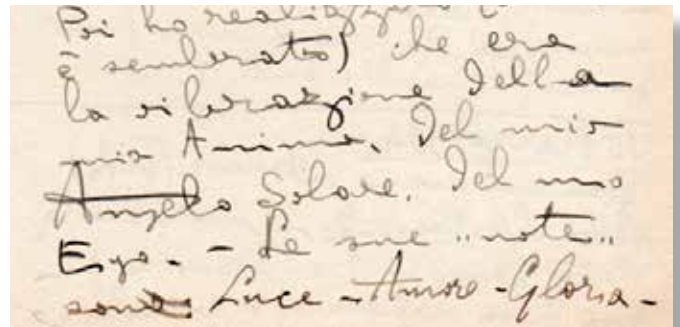 Poi ho realizzato (
è sembrato) che era
la vibrazione della
mia Anima, del mio
Angelo Solare. Del mio
Ego. - Le sue "note"
sono: Luce - Amore - Gloria -